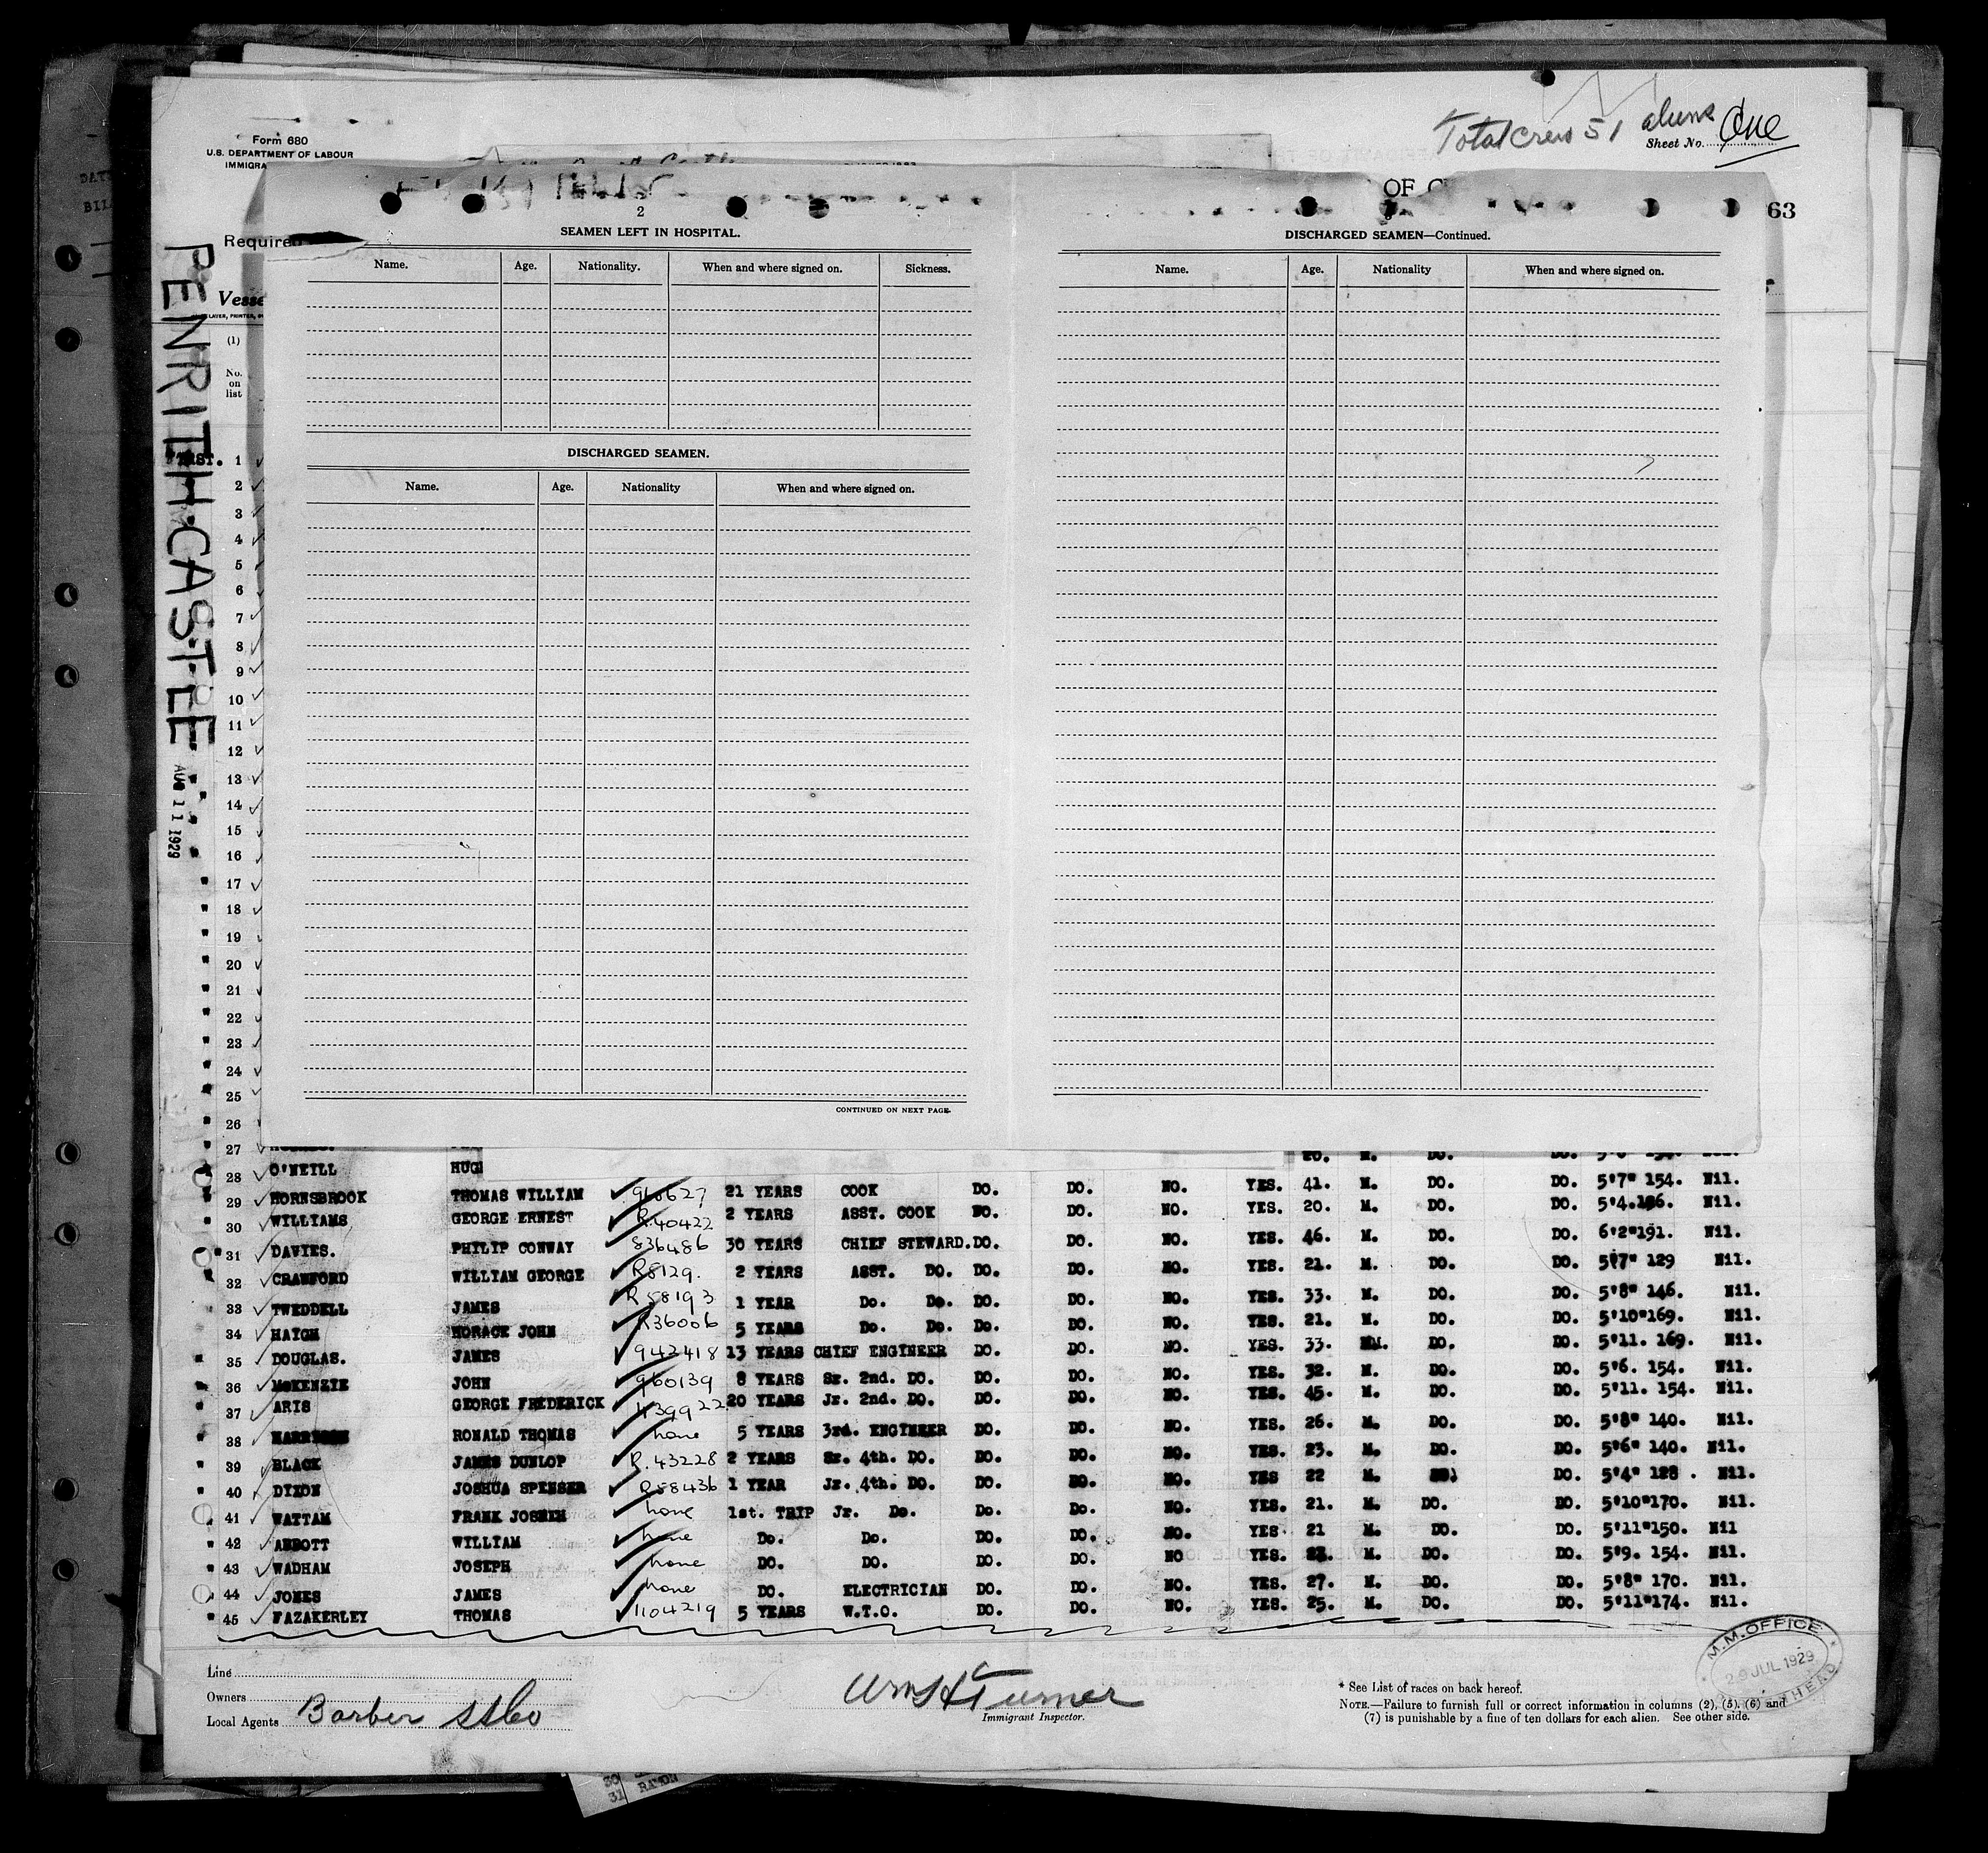 Total crew 51 aliens
Form 680
U.S. DEPARTMENT OF LABOUR
IMMIGRA
Sheet No. One
OF C
63
Required
2
SEAMEN LEFT IN HOSPITAL.
Name. Age. Nationality. When and where signed on. Sickness.
DISCHARGED SEAMEN.
Name. Age. Nationality When and where signed on.
CONTINUED ON NEXT PAGE.
DISCHARGED SEAMEN—Continued.
Name. Age. Nationality When and where signed on.
Vesse
(1)
No.
on
list
PENRITH CASTLE
AUG 11 1929
1
2
3
4
5
6
7
8
9
10
11
12
13
14
15
16
17
18
19
20
21
22
23
24
25
26
27
28 O'NEILL HUG
29 HORNSBROOK THOMAS WILLIAM 968627 21 YEARS COOK DO. DO. NO. YES. 41. M. DO. DO. 5'7" 154. Nil.
30 WILLIAMS GEORGE ERNEST R.40422 2 YEARS ASST. COOK DO. DO. NO. YES. 20. M. DO. DO. 5'4. Nil.
31 DAVIES. PHILIP CONWAY 836486 30 YEARS CHIEF STEWARD. DO. DO. NO. YES. 46. M. DO. DO. 6'2" 191. Nil.
32 CRAWFORD WILLIAM GEORGE R8129. 2 YEARS ASST. DO. DO. DO. NO. YES. 21. M. DO. DO. 5'7" 129 Nil.
33 TWEDDELL JAMES R58193 1 YEAR Do. Do. DO. DO. NO. YES. 33. M. DO. DO. 5'8" 146. Nil.
34 HAIGH HORACE JOHN R36006 5 YEARS Do. Do. Do. DO. NO. YES. 21. M. DO. DO. 5'10" 169. Nil.
35 DOUGLAS. JAMES 942418 13 YEARS CHIEF ENGINEER DO. DO. NO. YES. 33. M. DO. DO. 5'11. 169. Nil.
36 McKENZIE JOHN 960139 8 YEARS Sr. 2nd. DO. DO. DO. NO. YES. 32. M. DO. DO. 5'6. 154. Nil.
37 ARIS GEORGE FREDERICK 439922 20 YEARS Jr. 2nd. DO. DO. DO. NO. YES. 45. M. DO. DO. 5'11. 154. Nil.
38 RONALD THOMAS none 5 YEARS 3rd. ENGINEER DO. DO. NO. YES. 26. M. DO. DO. 5'8" 140. Nil.
39 BLACK JAMES DUNLOP R.43228 2 YEARS Sr. 4th. DO. DO. DO. NO. YES. 23. M. DO. DO. 5'6" 140. Nil.
40 DIXON JOSHUA SPENSER R58436 1 YEAR Jr. 4th. DO. DO. DO. NO. YES 22 M. DO. 5'4" 128 . Nil.
41 WATTAM FRANK none 1st. TRIP Jr. Do. Do. Do. NO. YES. 21. M. DO. DO. 5'10" 170. Nil.
42 ABBOTT WILLIAM none Do. Do. DO. DO. NO. YES 21 M. DO. DO. 5'11" 150. Nil
43 WADHAM JOSEPH none DO. DO. DO. DO. NO YES. M. DO. DO. 5'9. 154. Nil.
44 JONES JAMES none DO. ELECTRICIAN DO. DO. NO. YES. 27. M. DO. DO. 5'8" 170. Nil.
45 FAZAKERLEY THOMAS 1104219 5 YEARS W.T.O. DO. DO. NO. YES. 25. M. DO. DO. 5'11" 174. Nil.
Line
Owners
Local Agents Barber SS Co
Wm H Turner
Immigrant Inspector.
* See List of races on back hereof.
NOTE.—Failure to furnish full or correct information in columns (2), (5), (6) and
(7) is punishable by a fine of ten dollars for each alien. See other side.
M.M. OFFICE
29 JUL 1929
30
31 RAMON